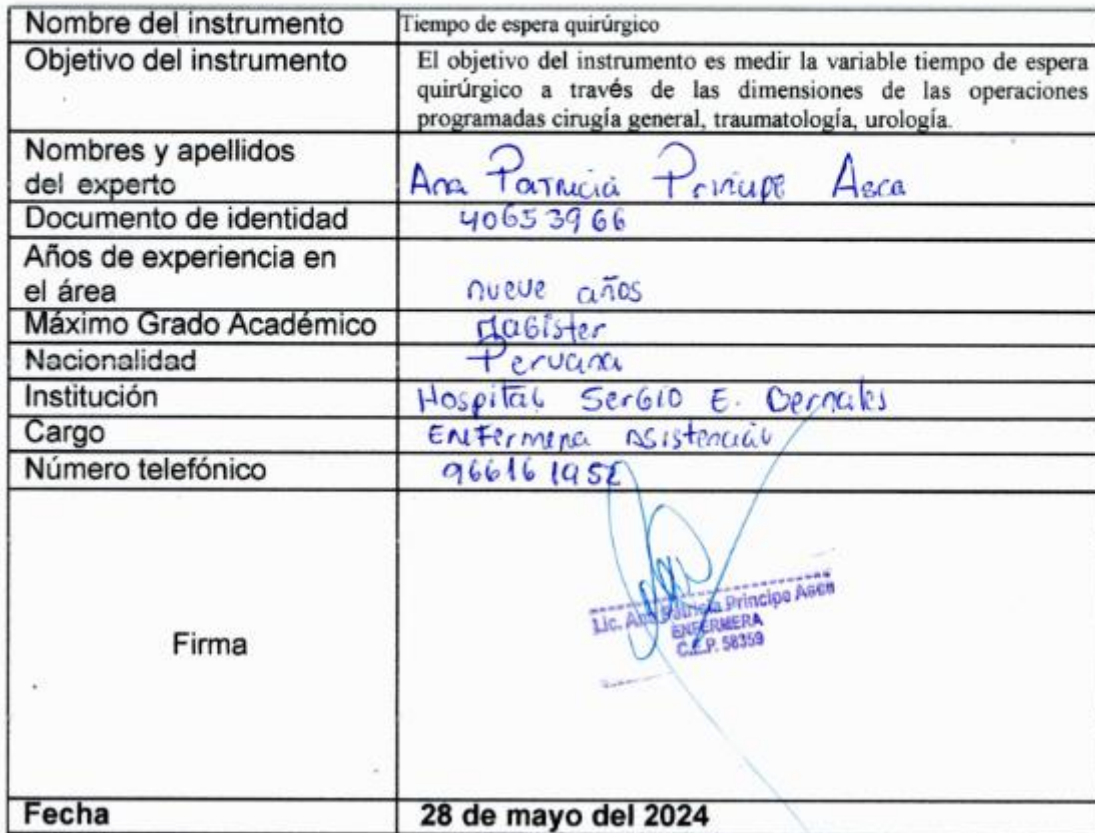 Nombre del instrumento
Tiempo de espera quirúrgico
Objetivo del instrumento
El objetivo del instrumento es medir la variable tiempo de espera
quirúrgico a través de las dimensiones de las operaciones
programadas cirugía general, traumatología, urología.
Nombres y apellidos
del experto
Ana Patricia Principe Asca
Documento de identidad
40653966
Años de experiencia en
el área
nueve años
Máximo Grado Académico
Magister
Nacionalidad
Peruana
Institución
Hospital Sergio E. Bernales
Cargo
Enfermera Asistencial
Número telefónico
Firma
Lic. Ana Patricia Principe Asca
ENFERMERA
C.E.P. 58359
Fecha
28 de mayo del 2024